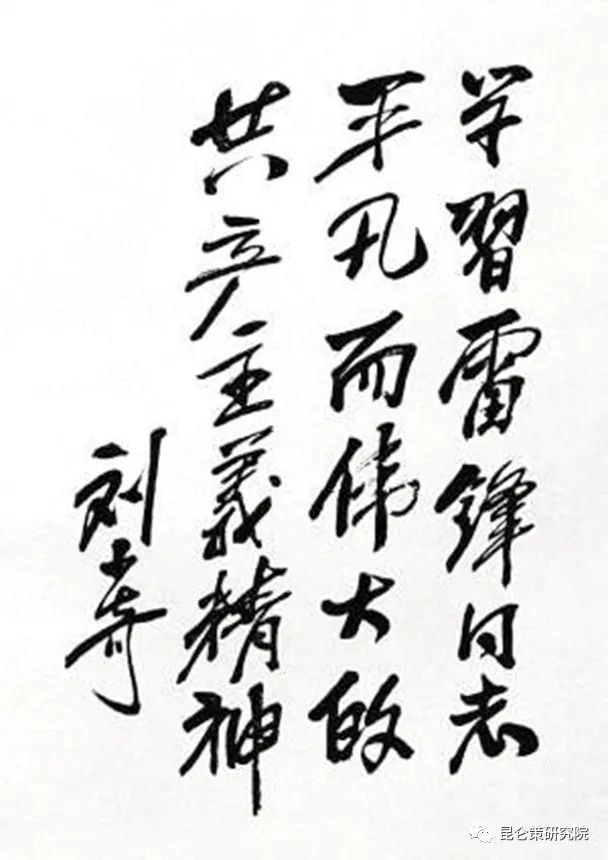 学習雷锋同志
平凡而伟大的
共产主義精神
刘少奇
昆仑策研究院